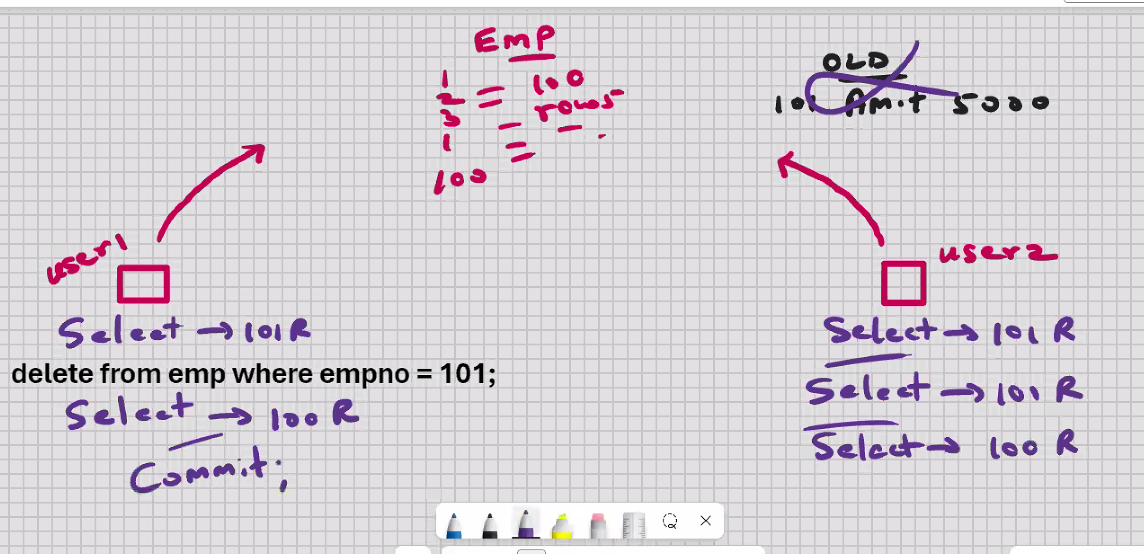 Emp
1
2
3
1
100
100
rows
OLD
101 Amit 5000
user1
Select → 101 R
delete from emp where empno = 101;
Select → 100 R
Commit;
user2
Select → 101 R
Select → 101 R
Select → 100 R